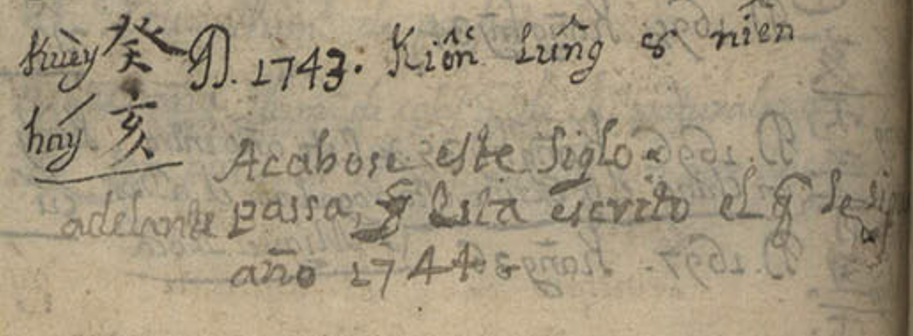 kùey 癸 D. 1743. Kiên lûng 8 niên
háy 亥
Acabose este siglo.
adelante passa, q̃ esta escrito el q̃ se
año 1744